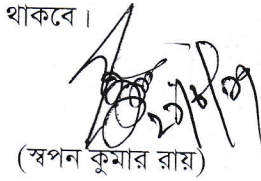 থাকবে।
(স্বপন কুমার রায়)